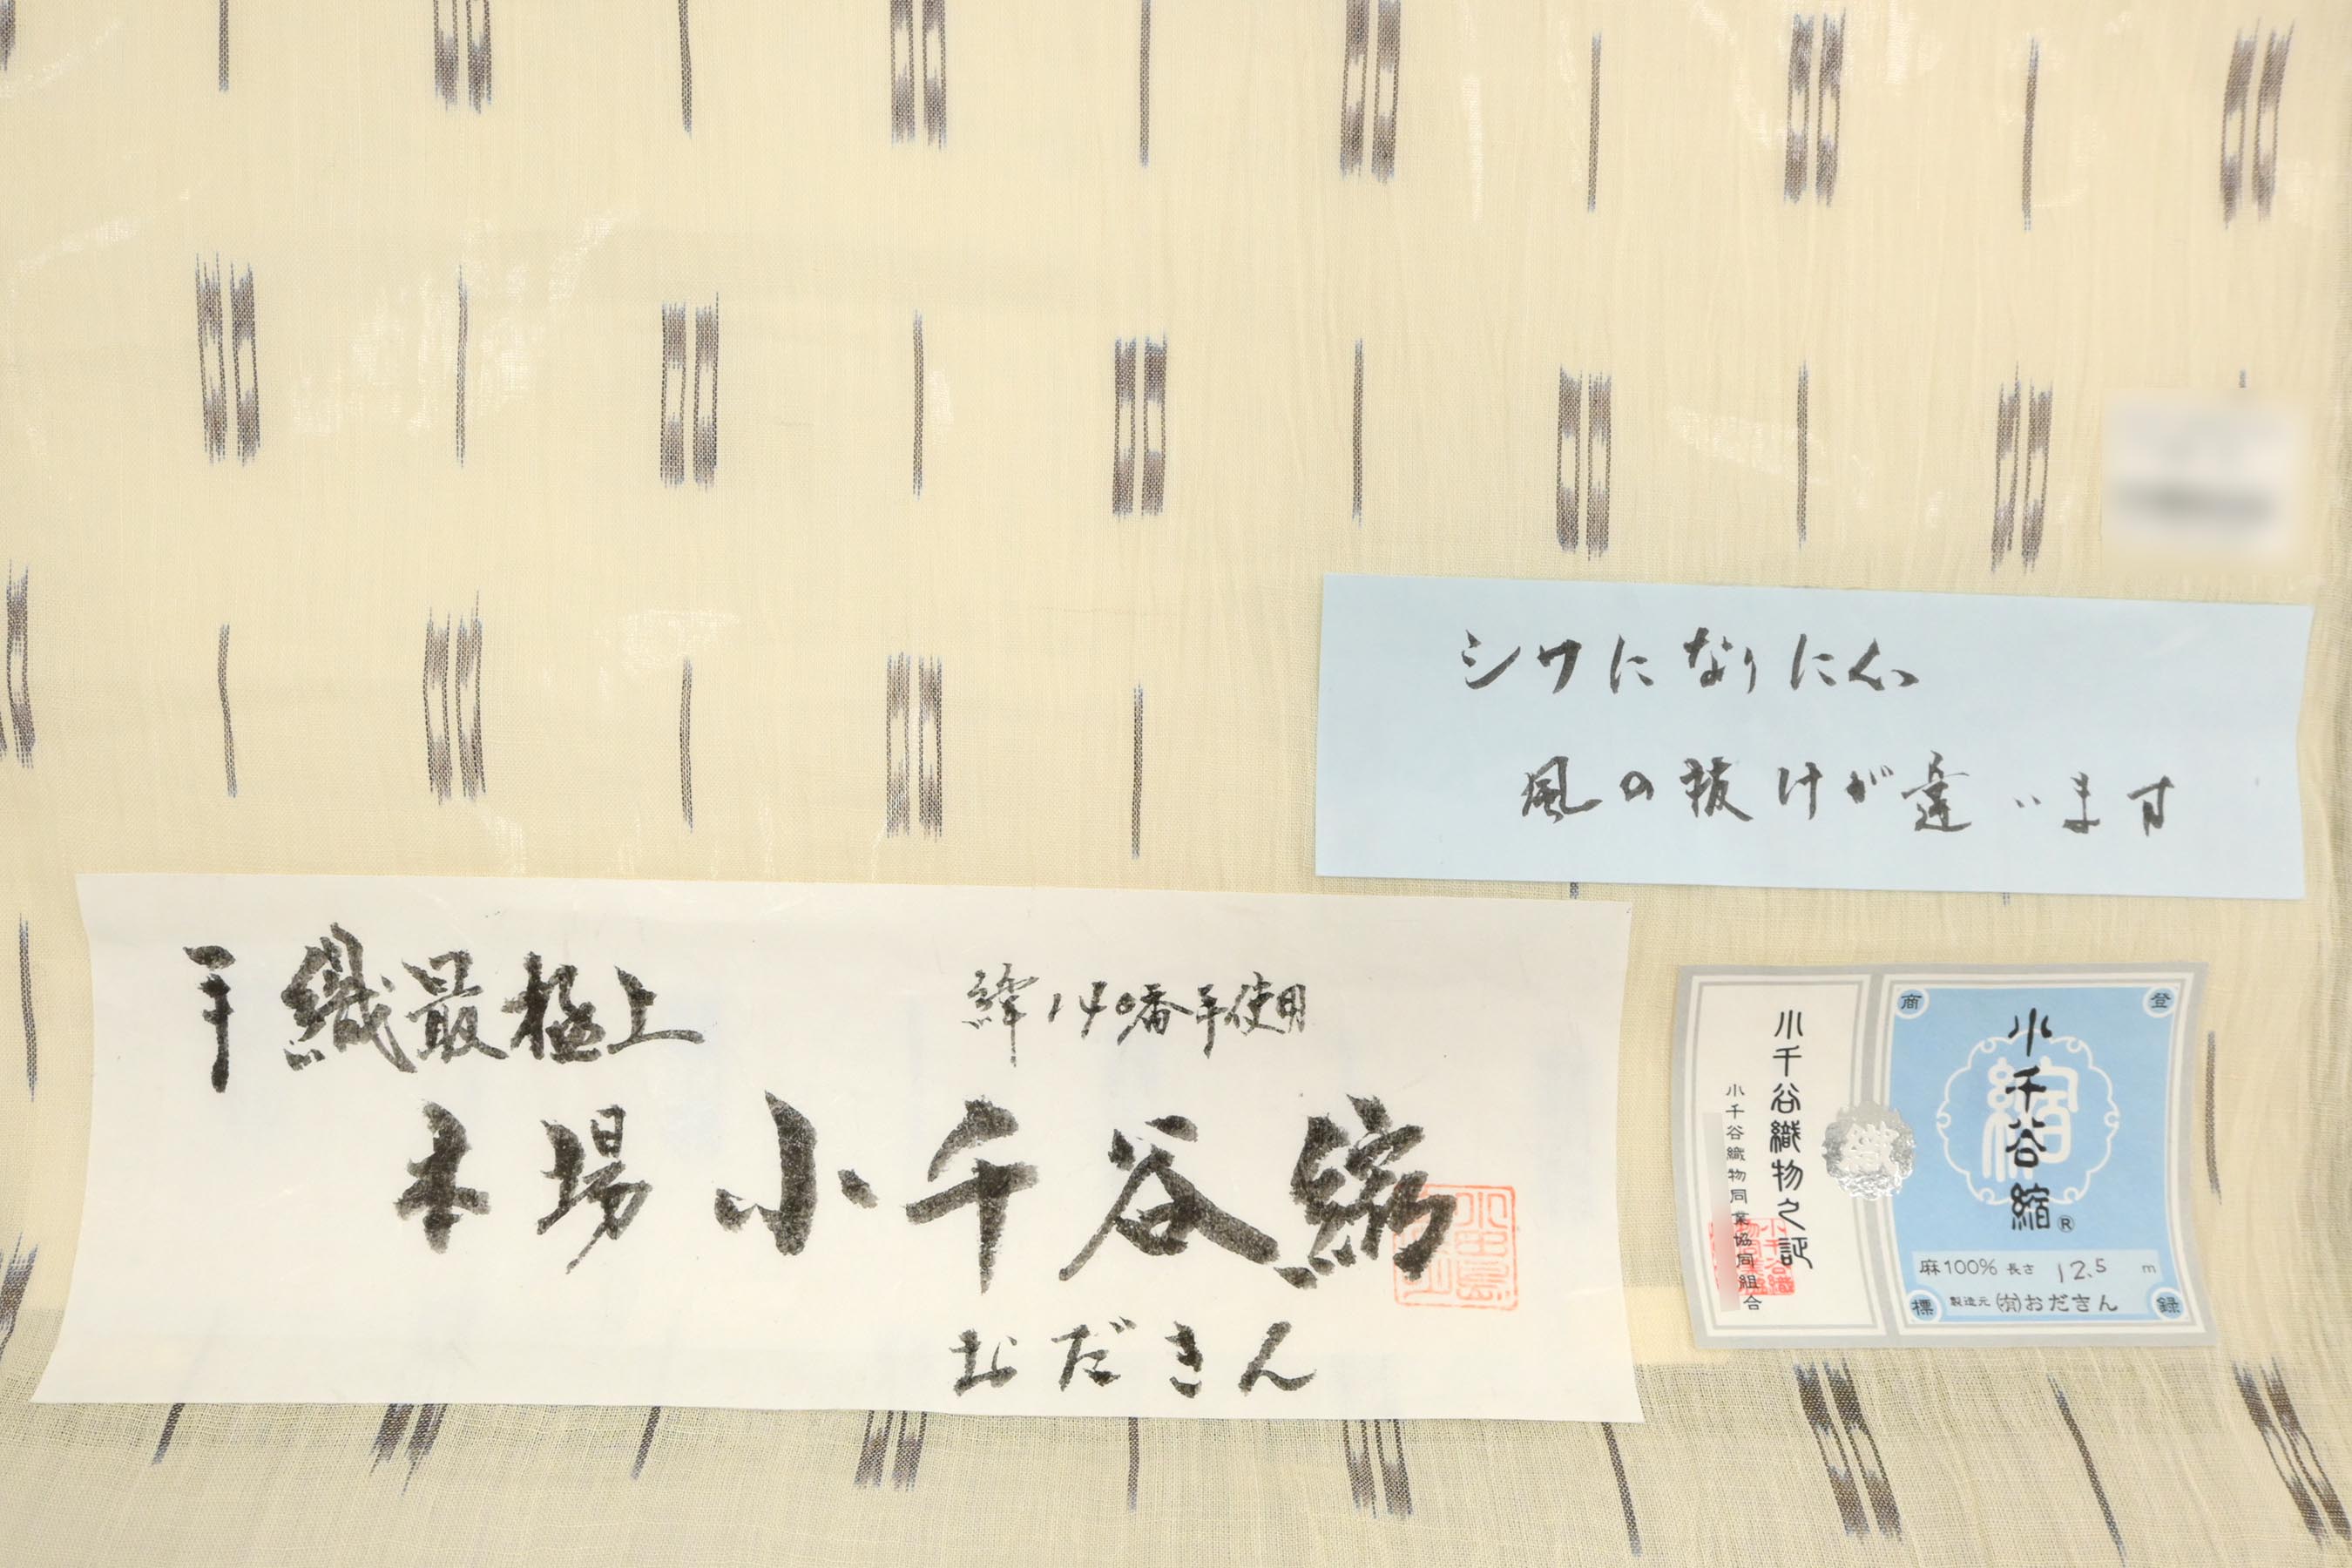 シワになりにくい
風の抜けが違います
手織最極上
緯140番手使用
本場小千谷縮
おだきん
小千谷織物之証
小千谷織物同業協同組合
商
登
縮
小千谷縮®
麻100% 長さ 12.5 m
製造元 (有)おだきん
標
録